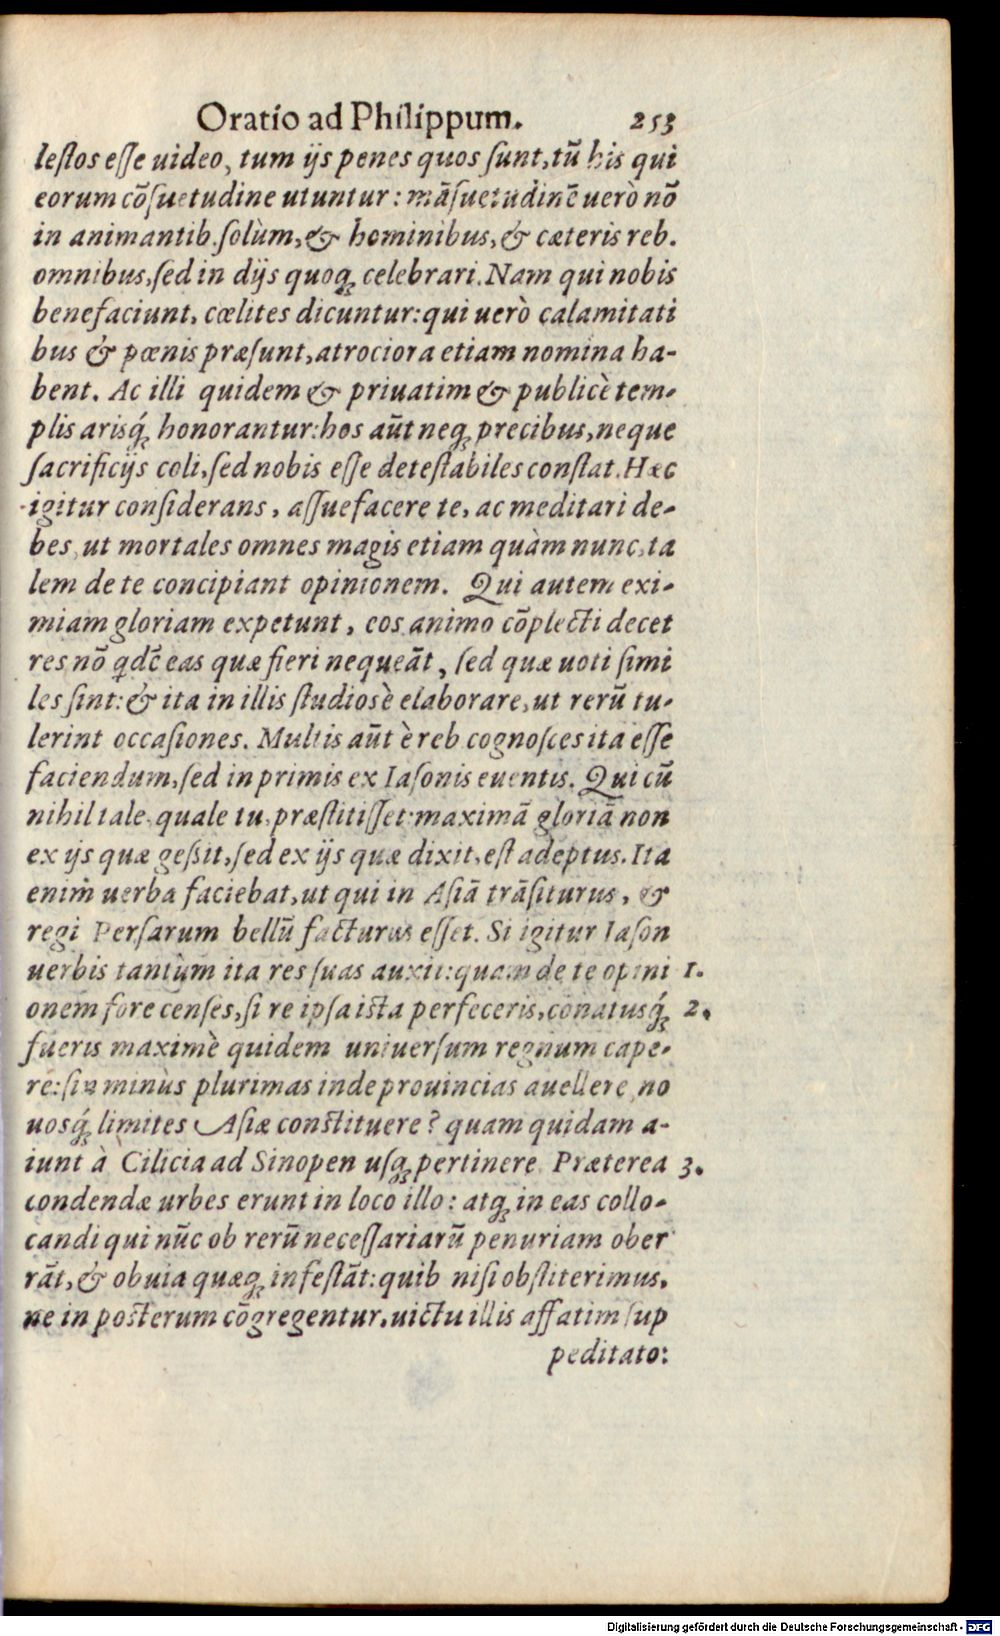 Oratio ad Philippum. 253
lestos esse uideo, tum ijs penes quos sunt, tũ his qui
eorum cõsuetudine utuntur: mãsuetudinẽ uerò nõ
in animantib. solùm, & hominibus, & cæteris reb.
omnibus, sed in dijs quoq; celebrari. Nam qui nobis
benefaciunt, cœlites dicuntur: qui uerò calamitati
bus & pœnis præsunt, atrociora etiam nomina ha-
bent. Ac illi quidem & priuatim & publicè tem-
plis arisq́; honorantur: hos aũt neq; precibus, neque
sacrificijs coli, sed nobis esse detestabiles constat. Hæc
igitur considerans, assuefacere te, ac meditari de-
bes, ut mortales omnes magis etiam quàm nunc, ta
lem de te concipiant opinionem. Qui autem exi-
miam gloriam expetunt, eos animo cõplecti decet
res nõ qdẽ eas quæ fieri nequeãt, sed quæ uoti simi
les sint: & ita in illis studiosè elaborare, ut rerũ tu-
lerint occasiones. Multis aũt è reb. cognosces ita esse
faciendum, sed in primis ex Iasonis euentis. Qui cũ
nihil tale, quale tu, præstitisset: maximã gloriã non
ex ijs quæ gessit, sed ex ijs quæ dixit, est adeptus. Ita
enim uerba faciebat, ut qui in Asiã trãsiturus, &
regi Persarum bellũ facturus esset. Si igitur Iason
uerbis tantùm ita res suas auxit: quam de te opini 1.
onem fore censes, si re ipsa ista perfeceris, conatusq́; 2.
fueris maximè quidem uniuersum regnum cape-
re: sin minùs plurimas inde prouincias auellere, no
uosq́; limites Asiæ constituere? quam quidam a-
iunt à Cilicia ad Sinopen usq; pertinere. Præterea 3.
condendæ urbes erunt in loco illo: atq; in eas collo-
candi qui nũc ob rerũ necessariarũ penuriam ober
rãt, & obuia quæq; infestãt: quib. nisi obstiterimus,
ne in posterum cõgregentur, uictu illis affatim sup
peditato:
Digitalisierung gefördert durch die Deutsche Forschungsgemeinschaft - DFG